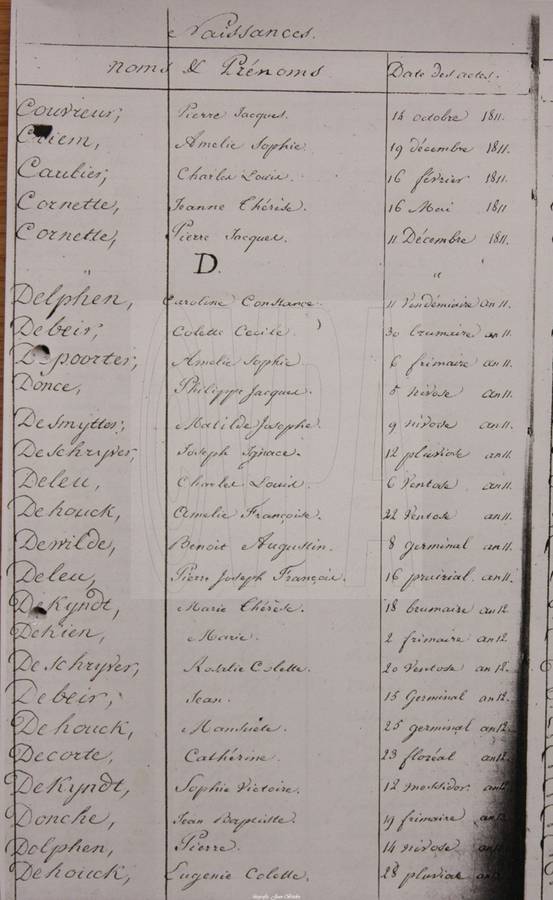 Naissances.
noms & Prénoms Date des actes.
Couvreur, Pierre Jacques. 14 octobre 1811.
Criem, Amelie Sophie. 19 décembre 1811.
Caulier, Charles Louis. 16 février 1811.
Cornette, Jeanne Thérèse. 16 Mai 1811
Cornette, Pierre Jacques. 11 Décembre 1811.
D.
" " "
Delphen, Caroline Constance. 11 Vendémiaire an 11.
Debeir, Colette Cecile. 30 brumaire an 11.
Depoorter, Amelie Sophie. 6 frimaire an 11.
Donce, Philippe Jacques. 5 nivose an 11.
Desmytter, Matilde Josephe. 9 nivose an 11.
Deschryver, Joseph Ignace. 12 pluviose an 11.
Deleu, Charles Louis. 6 Ventose an 11.
Dehouck, Amelie Françoise. 22 Ventose an 11.
Dewilde, Benoit Augustin. 8 germinal an 11.
Deleu, Pierre Joseph François. 16 prairial an 11.
DeKyndt, Marie Thérèse. 18 brumaire an 12.
Dehien, Marie. 2 frimaire an 12.
Deschryver, Rosalie Colette. 20 Ventose an 12.
Debeir, Jean. 15 Germinal an 12.
Dehouck, Mansuete. 25 germinal an 12.
Decorte, Cathérine. 23 floréal an 12.
DeKyndt, Sophie Victoire. 12 messidor an 12.
Donche, Jean Baptiste. 19 frimaire an
Dolphen, Pierre. 14 nivose an
Dehouck, Eugenie Colette. 28 pluviose an